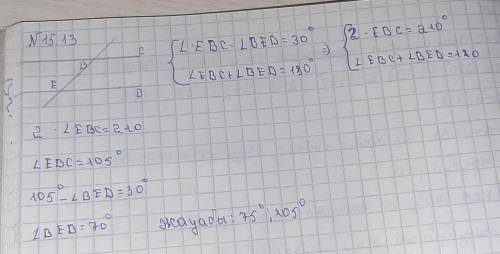 N15.13
B C
E D
∠·EBC-∠BED=30°
∠EBC+∠BED=180°
⇒
2·EBC=210°
∠EBC+∠BED=180
2·∠EBC=210
∠EBC=105°
105°-∠BED=30°
∠BED=70°
жауабы: 75°, 105°